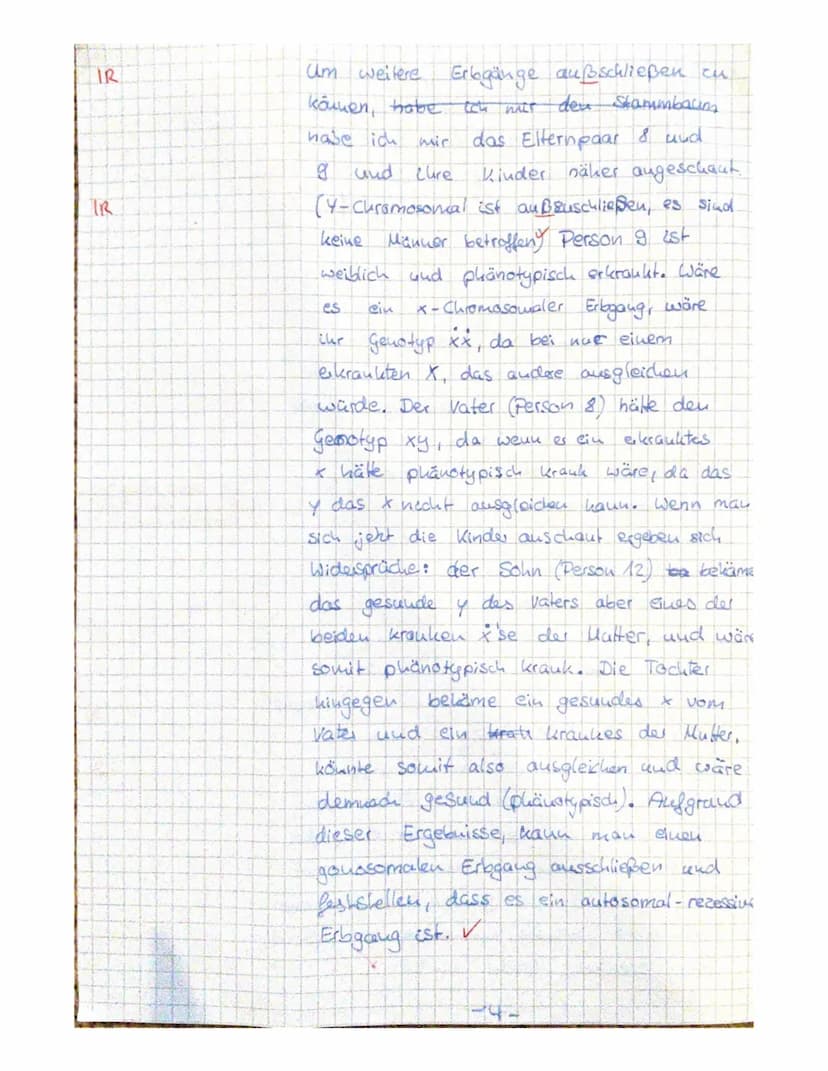 1R
Um weitere Erbgänge außschließen zu
können, habe ich mir den Stammbaum
habe ich mir das Elternpaar 8 und
9 und ihre Kinder näher angeschaut.
1R
(Y-Chromosomal ist außzuschließen, es sind
keine Männer betroffen) Person 9 ist
weiblich und phänotypisch erkrankt. Wäre
es ein x-Chromosomaler Erbgang, wäre
ihr Genotyp ẋẋ, da bei nur einem
erkrankten X, das andere ausgleichen
würde. Der Vater (Person 8) hätte den
Genotyp xy, da wenn es ein erkranktes
x hätte phänotypisch krank wäre, da das
y das x nicht ausgleichen kann. Wenn man
sich jetzt die Kinder anschaut ergeben sich
Widersprüche: der Sohn (Person 12) bekäme
das gesunde y des Vaters aber eines der
beiden kranken ẋ'se der Mutter, und wäre
somit phänotypisch krank. Die Tochter
hingegen bekäme ein gesundes x vom
Vater und ein krankes der Mutter,
könnte somit also ausgleichen und wäre
demnach gesund (phänotypisch). Aufgrund
dieser Ergebnisse, kann man einen
gonosomalen Erbgang ausschließen und
feststellen, dass es ein autosomal-rezessiv
Erbgang ist. ✓
-4-